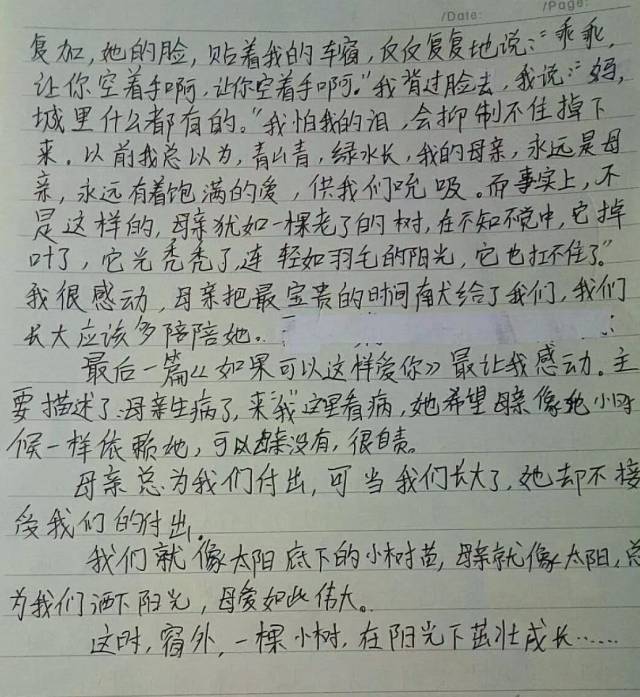 /Date: /Page:
复加，她的脸，贴着我的车窗，反反复复地说："乖乖，
让你空着手啊，让你空着手啊。"我背过脸去，我说："妈，
城里什么都有的。"我怕我的泪，会抑制不住掉下
来。以前我总以为，青山青，绿水长，我的母亲，永远是母
亲，永远有着饱满的爱，供我们吮吸。而事实上，不
是这样的，母亲犹如一棵老了的树，在不知不觉中，它掉
叶了，它光秃秃了，连轻如羽毛的阳光，它也扛不住了。"
我很感动，母亲把最宝贵的时间献给了我们，我们
长大应该多陪陪她。
最后一篇《如果可以这样爱你》最让我感动。主
要描述了：母亲生病了，来"我"这里看病，她希望母亲像她小时
候一样依赖她，可母亲没有，很自责。
母亲总为我们付出，可当我们长大了，她却不接
受我们的付出。
我们就像太阳底下的小树苗，母亲就像太阳，总
为我们洒下阳光，母爱如此伟大。
这时，窗外，一棵小树，在阳光下茁壮成长……